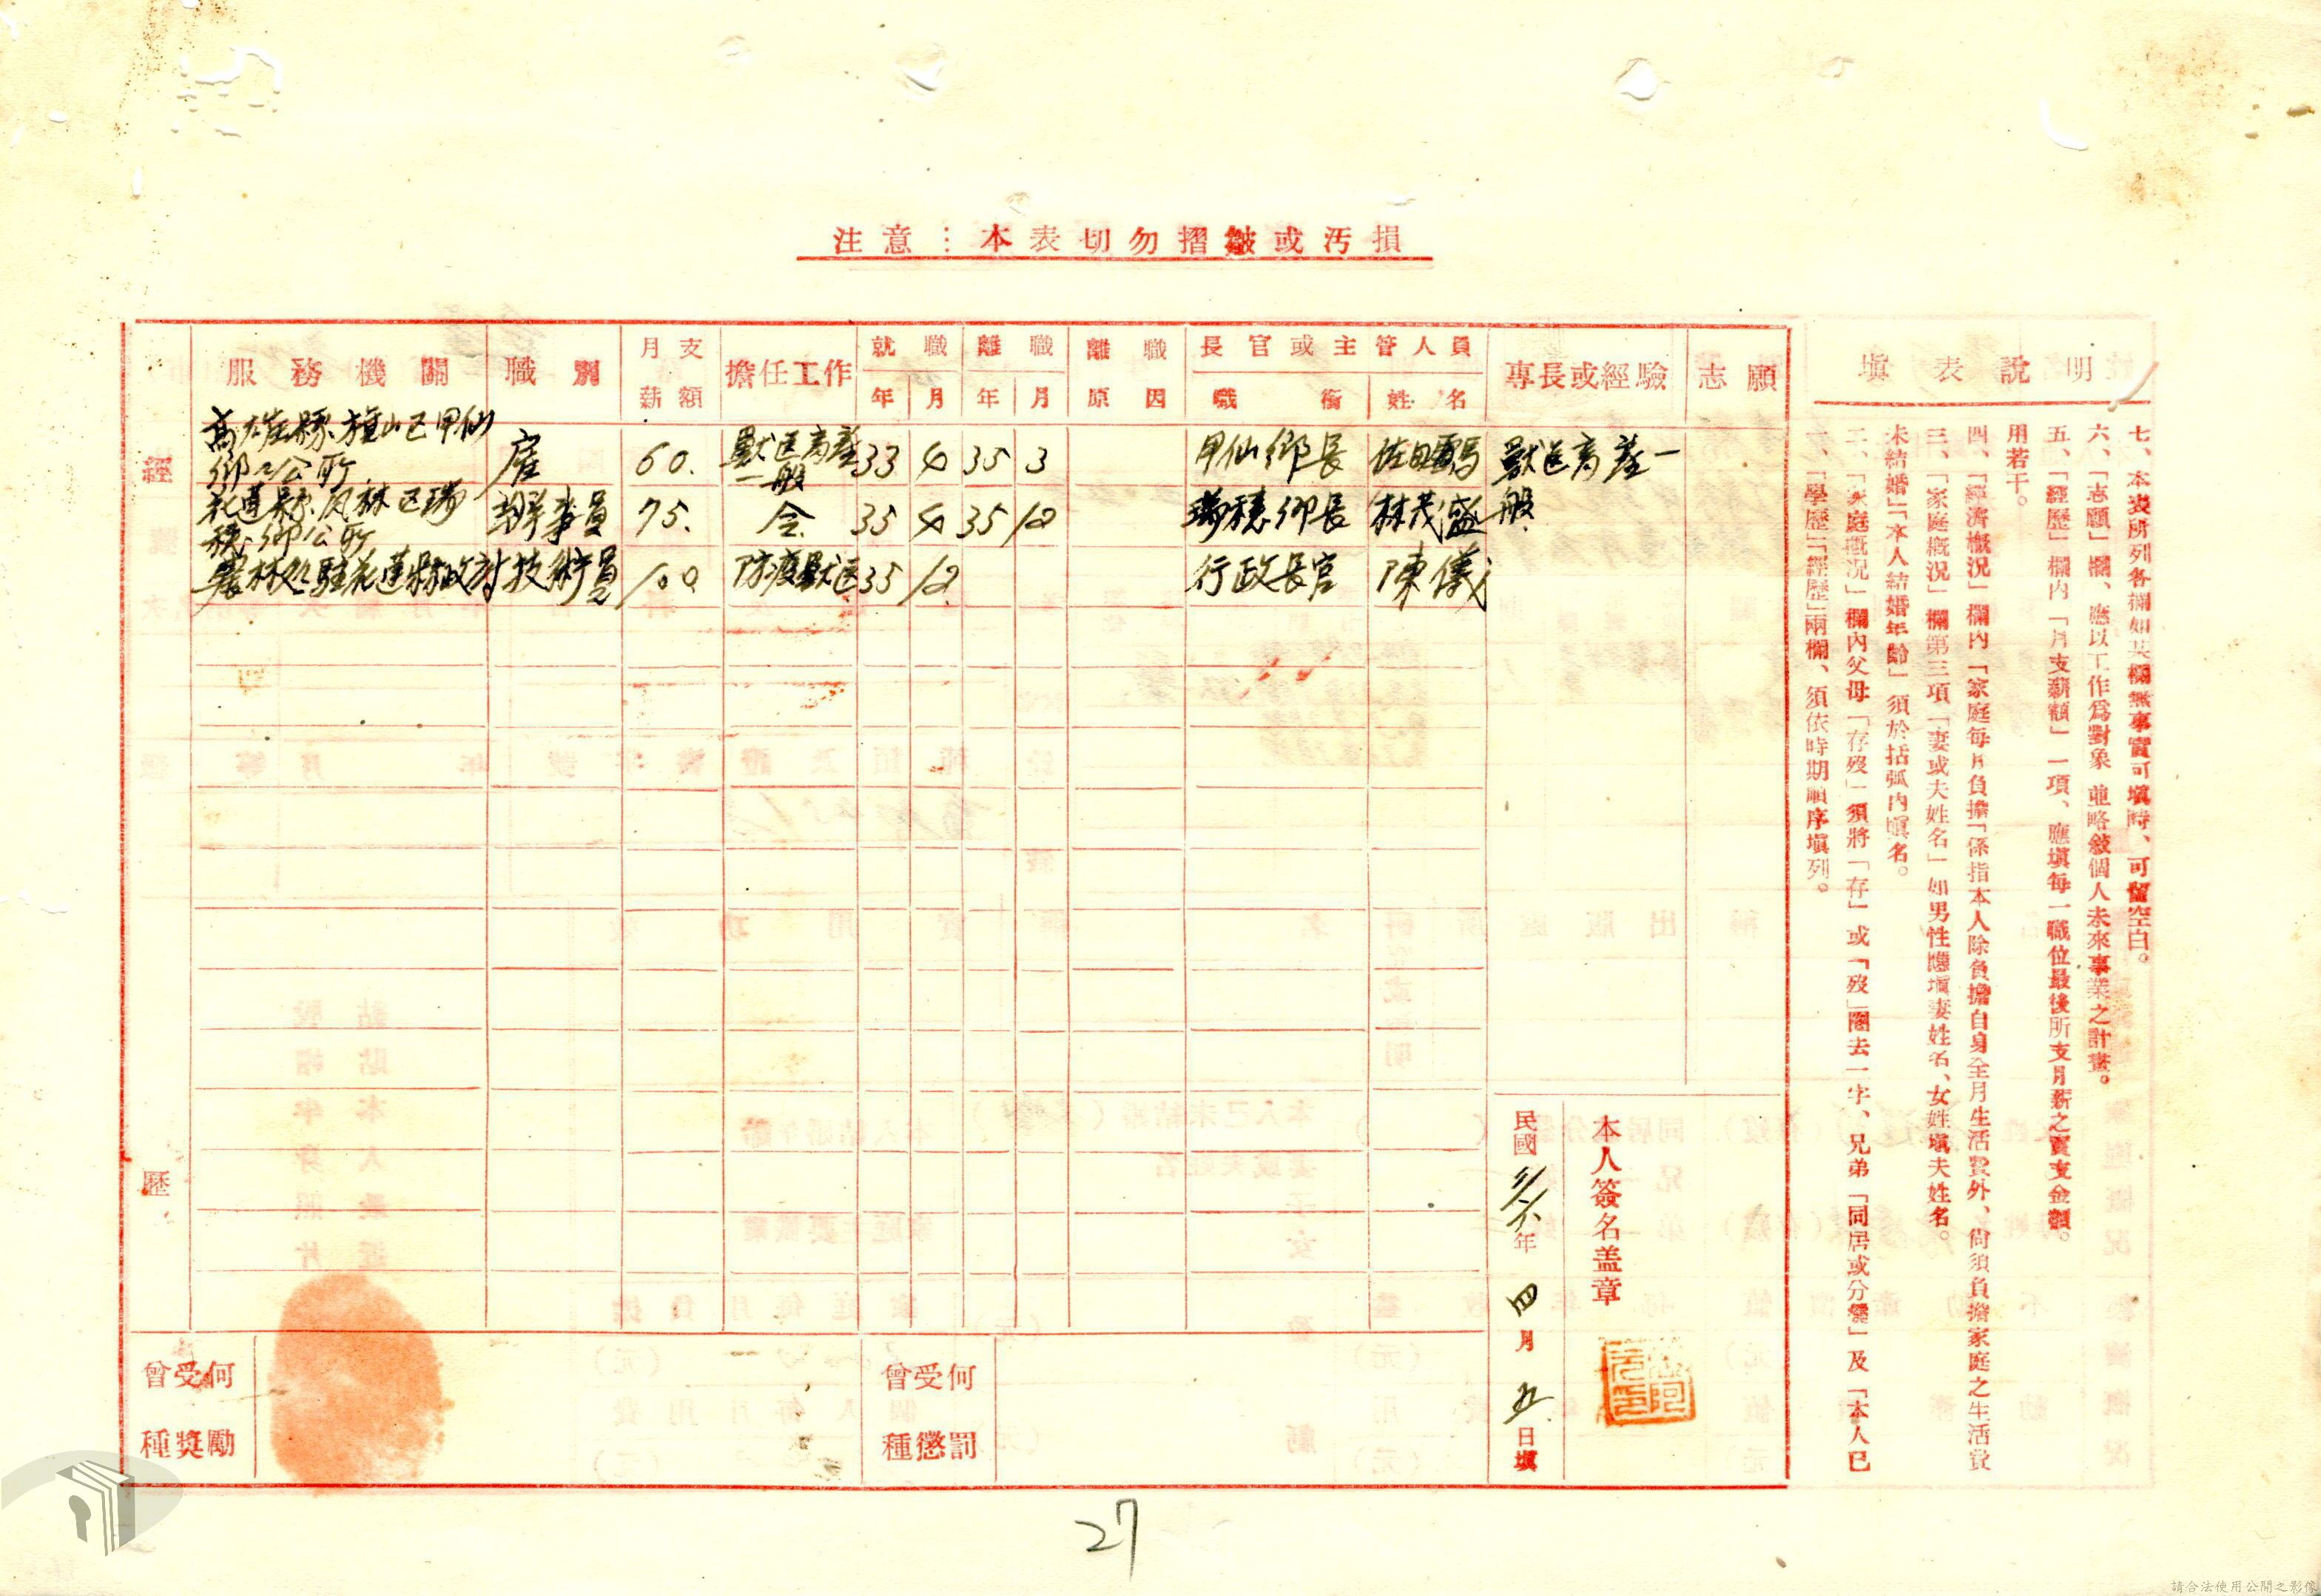 注意：本表切勿摺皺或污損
經歷
服務機關
職別
月支薪額
擔任工作
就職
年
月
離職
年
月
離職原因
長官或主管人員
職銜
姓名
專長或經驗
志願
高雄縣旗山区甲仙
鄉公所
雇
60.
獸医畜産
一般
33
4
35
3
甲仙鄉長
獸医畜産一
般
花蓮縣鳳林区瑞
穗鄉公所
幹事員
75.
仝
35
4
35
12
瑞穗鄉長
林茂盛
農林処駐花蓮縣政府
技術員
100
防疫獸医
35
12
行政長官
陳儀
曾受何種獎勵
曾受何種懲罰
本人簽名盖章
民國 年四月五日填
填表說明
一、「學歷」「經歷」兩欄、須依時期順序填列。
二、「家庭概況」欄內父母「存歿」須將「存」或「歿」圈去一字、兄弟「同居或分爨」及「本人已
未結婚」「本人結婚年齡」須於括弧內填名。
三、「家庭概況」欄第三項「妻或夫姓名」如男性應填妻姓名、女姓填夫姓名。
四、「經濟概況」欄內「家庭每月負擔」係指本人除負擔自身全月生活費外、尙須負擔家庭之生活費
用若干。
五、「經歷」欄內「月支薪額」一項、應填每一職位最後所支月薪之實支金額。
六、「志願」欄、應以工作爲對象並略敘個人未來事業之計畫。
七、本表所列各欄如某欄無事實可填時、可留空白。
27
請合法使用公開之影像